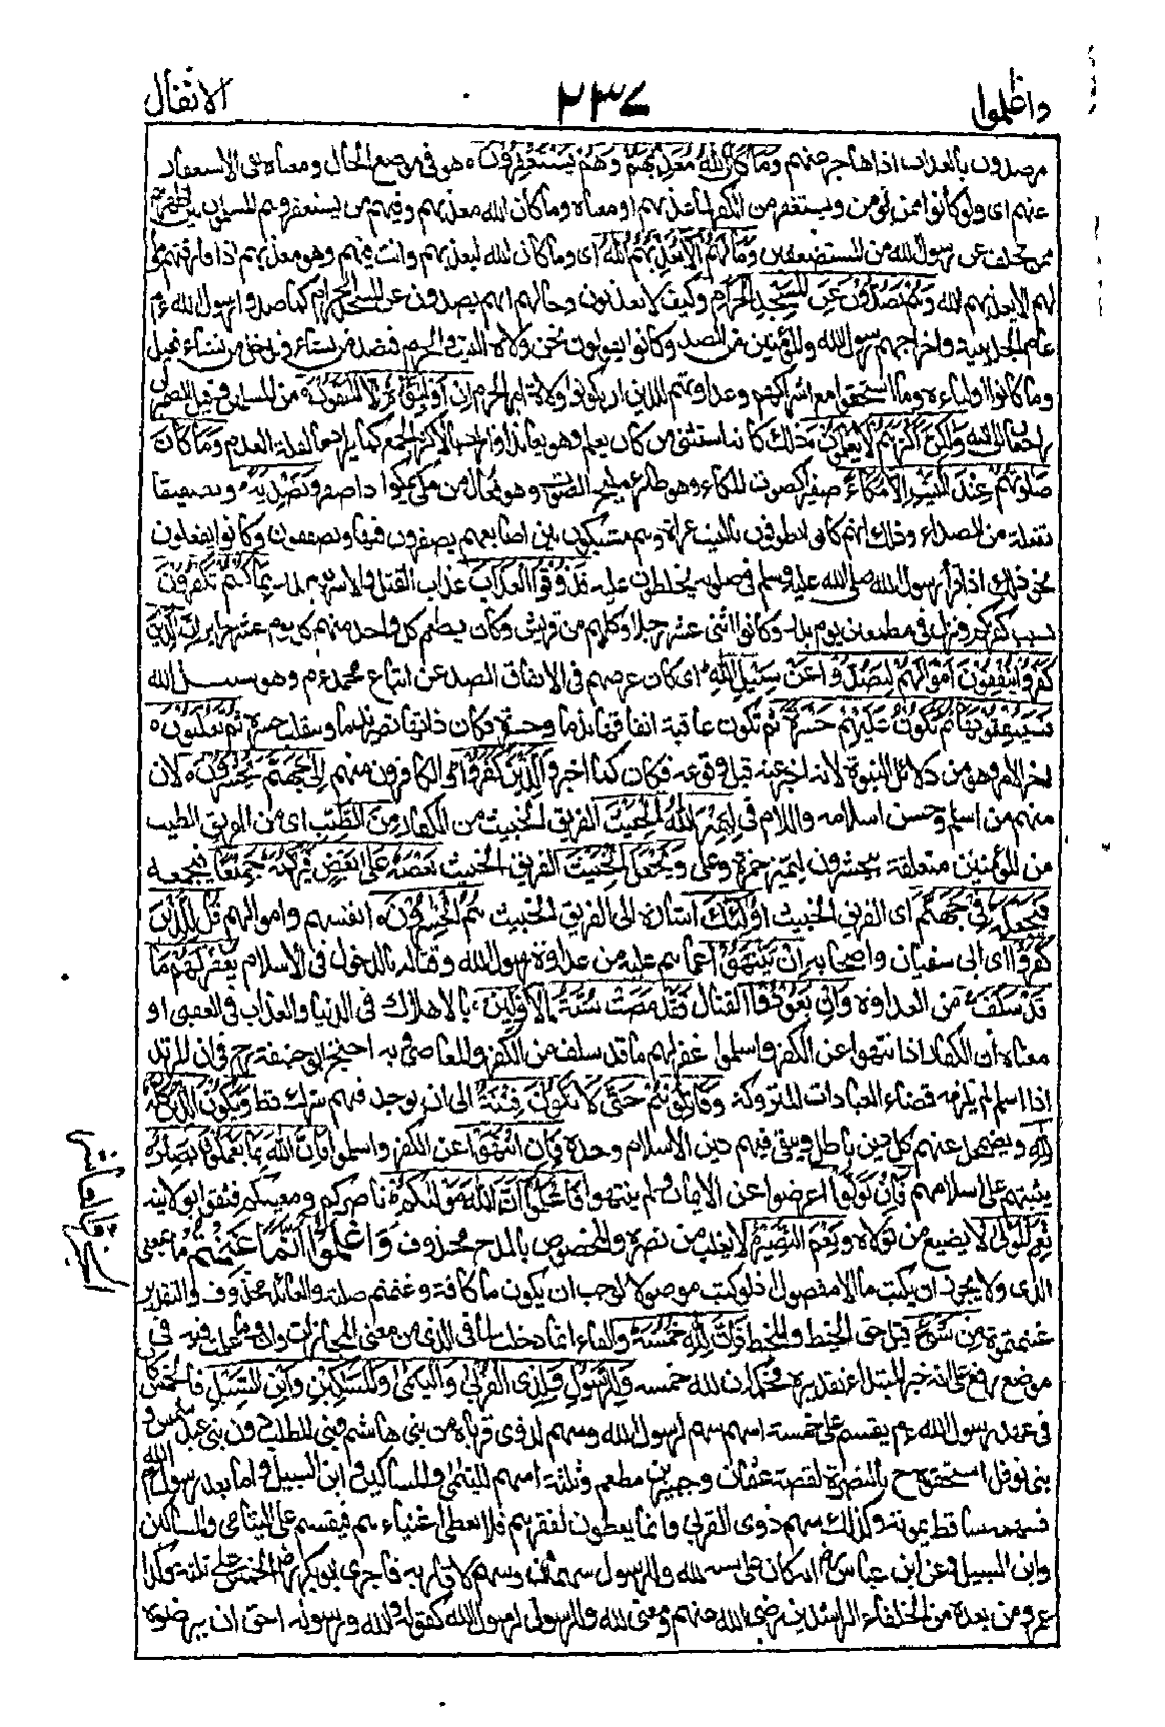 واعلموا ٢٣٧ الانفال
مرصدون بالعذاب اذا هاجر عنهم وما كان الله معذبهم وهم يستغفرون ه هو فى موضع الحال ومعناه نفى الاستغفار
عنهم اى ولو كانوا ممن يؤمن ويستغفر من الكفر لما عذبهم او معناه وما كان الله معذبهم وفيهم من يستغفر وهم المسلمون بين اظهرهم
ممن تخلف عن رسول الله من المستضعفين وما لهم الا يعذبهم الله اى وما كان الله ليعذبهم وانت فيهم وهو معذبهم اذا فارقتهم وما
لهم الا يعذبهم الله وهم يصدون عن المسجد الحرام وكيف لا يعذبون وحالهم انهم يصدون عن المسجد الحرام كما صدوا رسول الله عم
عام الحديبية واخراجهم رسول الله والمؤمنين من الصد وكانوا يقولون نحن ولاة البيت والحرم فنصد من نشاء وندخل من نشاء فقيل
وما كانوا اولياءه وما استحقوا مع اشراكهم وعداوتهم للدين ان يكونوا ولاة امر الحرم ان اولياؤه الا المتقون من المسلمين وقيل الضميران
راجعان الى الله ولكن اكثرهم لا يعلمون ذلك كانه استثنى من كان يعلم وهو يعاند او اراد بالاكثر الجمع كما يراد بالقلة العدم وما كان
صلوتهم عند البيت الا مكاء صفيرا كصوت المكاء وهو طائر مليح الصوت وهو فعال من مكا يمكوا اذا صفر وتصدية وتصفيقا
تفعلة من الصداء وذلك انهم كانوا يطوفون بالبيت عراة وهم مشبكون بين اصابعهم يصفرون فيها ويصفقون وكانوا يفعلون
نحو ذلك اذا قرأ رسول الله صلى الله عليه وسلم فى صلوته يخلطون عليه فذوقوا العذاب عذاب القتل والاسر يوم بدر بما كنتم تكفرون
بسبب كفركم ونزل فى المطعمين يوم بدر وكانوا اثنى عشر رجلا وكلهم من قريش وكان يطعم كل واحد منهم كل يوم عشر جزائر ان الذين
كفروا ينفقون اموالهم ليصدوا عن سبيل الله اى كان غرضهم فى الانفاق الصد عن اتباع محمد عم وهو سبيل الله
فسينفقونها ثم تكون عليهم حسرة ثم تكون عاقبة انفاقها ندما وحسرة فكان ذاتها تصير ندما وتنقلب حسرة ثم يغلبون ه
اخر الامر وهو من دلائل النبوة لانه اخبر عنه قبل وقوعه فكان كما اخبر والذين كفروا والكافرون منهم الى جهنم يحشرون ه لان
منهم من اسلم وحسن اسلامه واللام فى ليميز الله الخبيث الفريق الخبيث من الكفار من الطيب اى من الفريق الطيب
من المؤمنين متعلقة بيحشرون ليميز حمزة وعلى ويجعل الخبيث الفريق الخبيث بعضه على بعض فيركمه جميعا فيجمعه
فيجعله فى جهنم اى الفريق الخبيث اولئك اشارة الى الفريق الخبيث هم الخسرون ه انفسهم واموالهم قل للذين
كفروا اى ابى سفيان واصحابه ان ينتهوا عما هم عليه من عداوة رسول الله وقتاله بالدخول فى الاسلام يغفر لهم ما
قد سلف من العداوة وان يعودوا لقتال فقد مضت سنة الاولين ه بالاهلاك فى الدنيا والعذاب فى العقبى او
معناه ان الكفار اذا انتهوا عن الكفر واسلموا غفر لهم ما قد سلف من الكفر والمعاصى وبه احتج ابو حنيفة رح فى ان المرتد
اذا اسلم لم يلزمه قضاء العبادات المتروكة وقاتلوهم حتى لا تكون فتنة الى ان يوجد فيهم شرك قط ويكون الدين كله
لله ويضمحل عنهم كل دين باطل ويبقى فيهم دين الاسلام وحده فان انتهوا عن الكفر واسلموا فان الله بما يعملون بصير ه
يثيبهم على اسلامهم فان تولوا اعرضوا عن الايمان ولم ينتهوا فاعلموا ان الله مولىكم ه ناصركم ومعينكم فثقوا بولايته
نعم المولى لا يضيع من تولاه ونعم النصير لا يغلب من نصره والمخصوص بالمدح محذوف واعلموا انما غنمتم ما بمعنى
الذى ولا يجوز ان يكتب ما الا مفصولا اذ لو كتب موصولا لوجب ان يكون ما كافة وغنمتم صلته والعائد محذوف والتقدير
غنمتموه من شئ قيل حتى الخيط والمخيط فان لله خمسه والفاء انما دخلت لما فى الذى من معنى المجازات وان وما عملت فيه فى
موضع رفع على انه خبر المبتدا تقديره فحكمه ان لله خمسه وللرسول ولذى القربى واليتمى والمسكين وابن السبيل فالخمس كان
فى عهد رسول الله عم يقسم على خمسة اسهم سهم لرسول الله وسهم لذوى قرباه من بنى هاشم وبنى المطلب دون بنى عبد شمس و
بنى نوفل استحقوه ح بالنصرة لقصة عثمان وجبير بن مطعم وثلثة اسهم لليتمى والمساكين وابن السبيل واما بعد رسول الله عم
فسهمه ساقط بموته وكذلك سهم ذوى القربى وانما يعطون لفقرهم فلا يعطى اغنياءهم فيقسم على اليتامى والمساكين
وابن السبيل وعن ابن عباس رض انه كان على ستة لله وللرسول سهمان وسهم لاقاربه فاجرى ابو بكر رض الخمس على ثلثة وكذا
عمر ومن بعده من الخلفاء الراشدين رضى الله عنهم ومعنى لله وللرسول لرسول الله كقوله والله ورسوله احق ان يرضوه